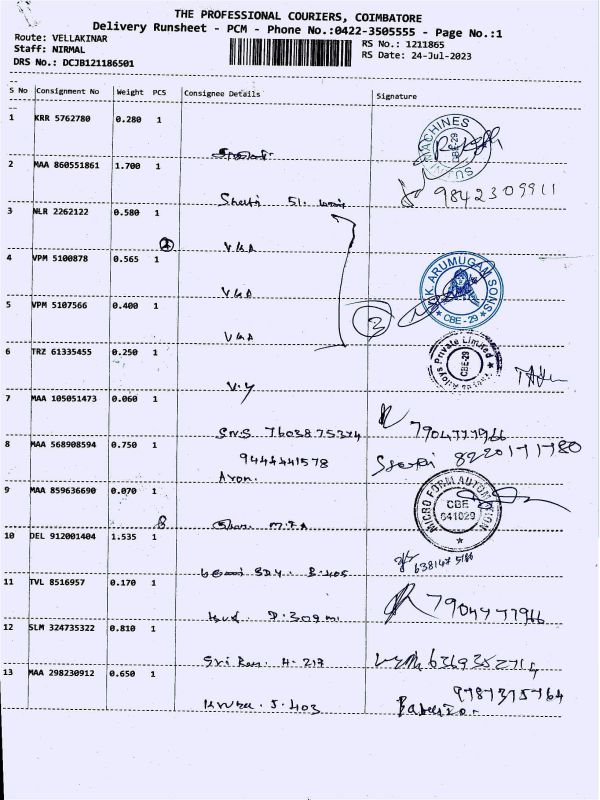 THE PROFESSIONAL COURIERS, COIMBATORE
Delivery Runsheet - PCM - Phone No.:0422-3505555 - Page No.:1
Route: VELLAKINAR
RS No.: 1211865
Staff: NIRMAL
RS Date: 24-Jul-2023
DRS No.: DCJB121186501
S No Consignment No Weight PCS Consignee Details Signature
1 KRR 5762780 0.280 1
MACHINES
CBE-29
2 MAA 860551861 1.700 1
9842309911
3 NLR 2262122 0.580 1
VGA
4 VPM 5100878 0.565 1
VGA
K. ARUMUGAM SONS
CBE - 29
5 VPM 5107566 0.400 1
3
VGA
Alloys Private Limited
CBE-29
6 TRZ 61335455 0.250 1
V.Y
7 MAA 105051473 0.060 1
SNS 7603875374
7904777966
8 MAA 568908594 0.750 1
9444441578
8220171780
9 MAA 859636690 0.070 1
MICRO FORM AUTOMATION
CBE
641029
10 DEL 912001404 1.535 1
B-405
11 TVL 8516957 0.170 1
D-309
7904777966
12 SLM 324735322 0.810 1
Sri Ram. H-217
13 MAA 298230912 0.650 1
J-403
9787375764